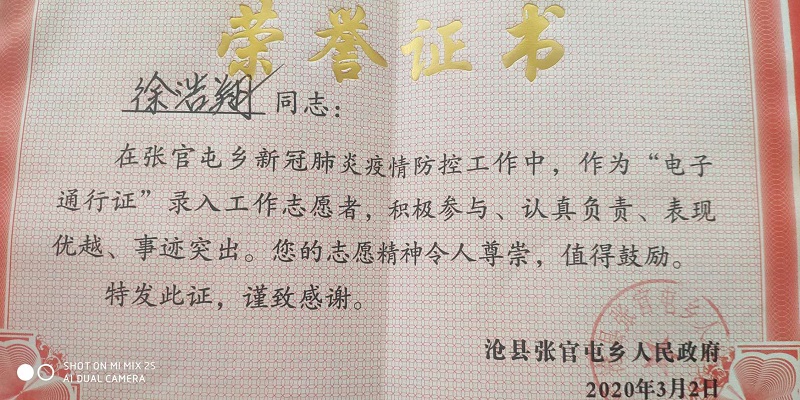 荣誉证书
徐浩翔 同志：
在张官屯乡新冠肺炎疫情防控工作中，作为“电子
通行证”录入工作志愿者，积极参与、认真负责、表现
优越、事迹突出。您的志愿精神令人尊崇，值得鼓励。
特发此证，谨致感谢。
县张官屯乡人
沧县张官屯乡人民政府
2020年3月2日
SHOT ON MI MIX 2S
AI DUAL CAMERA